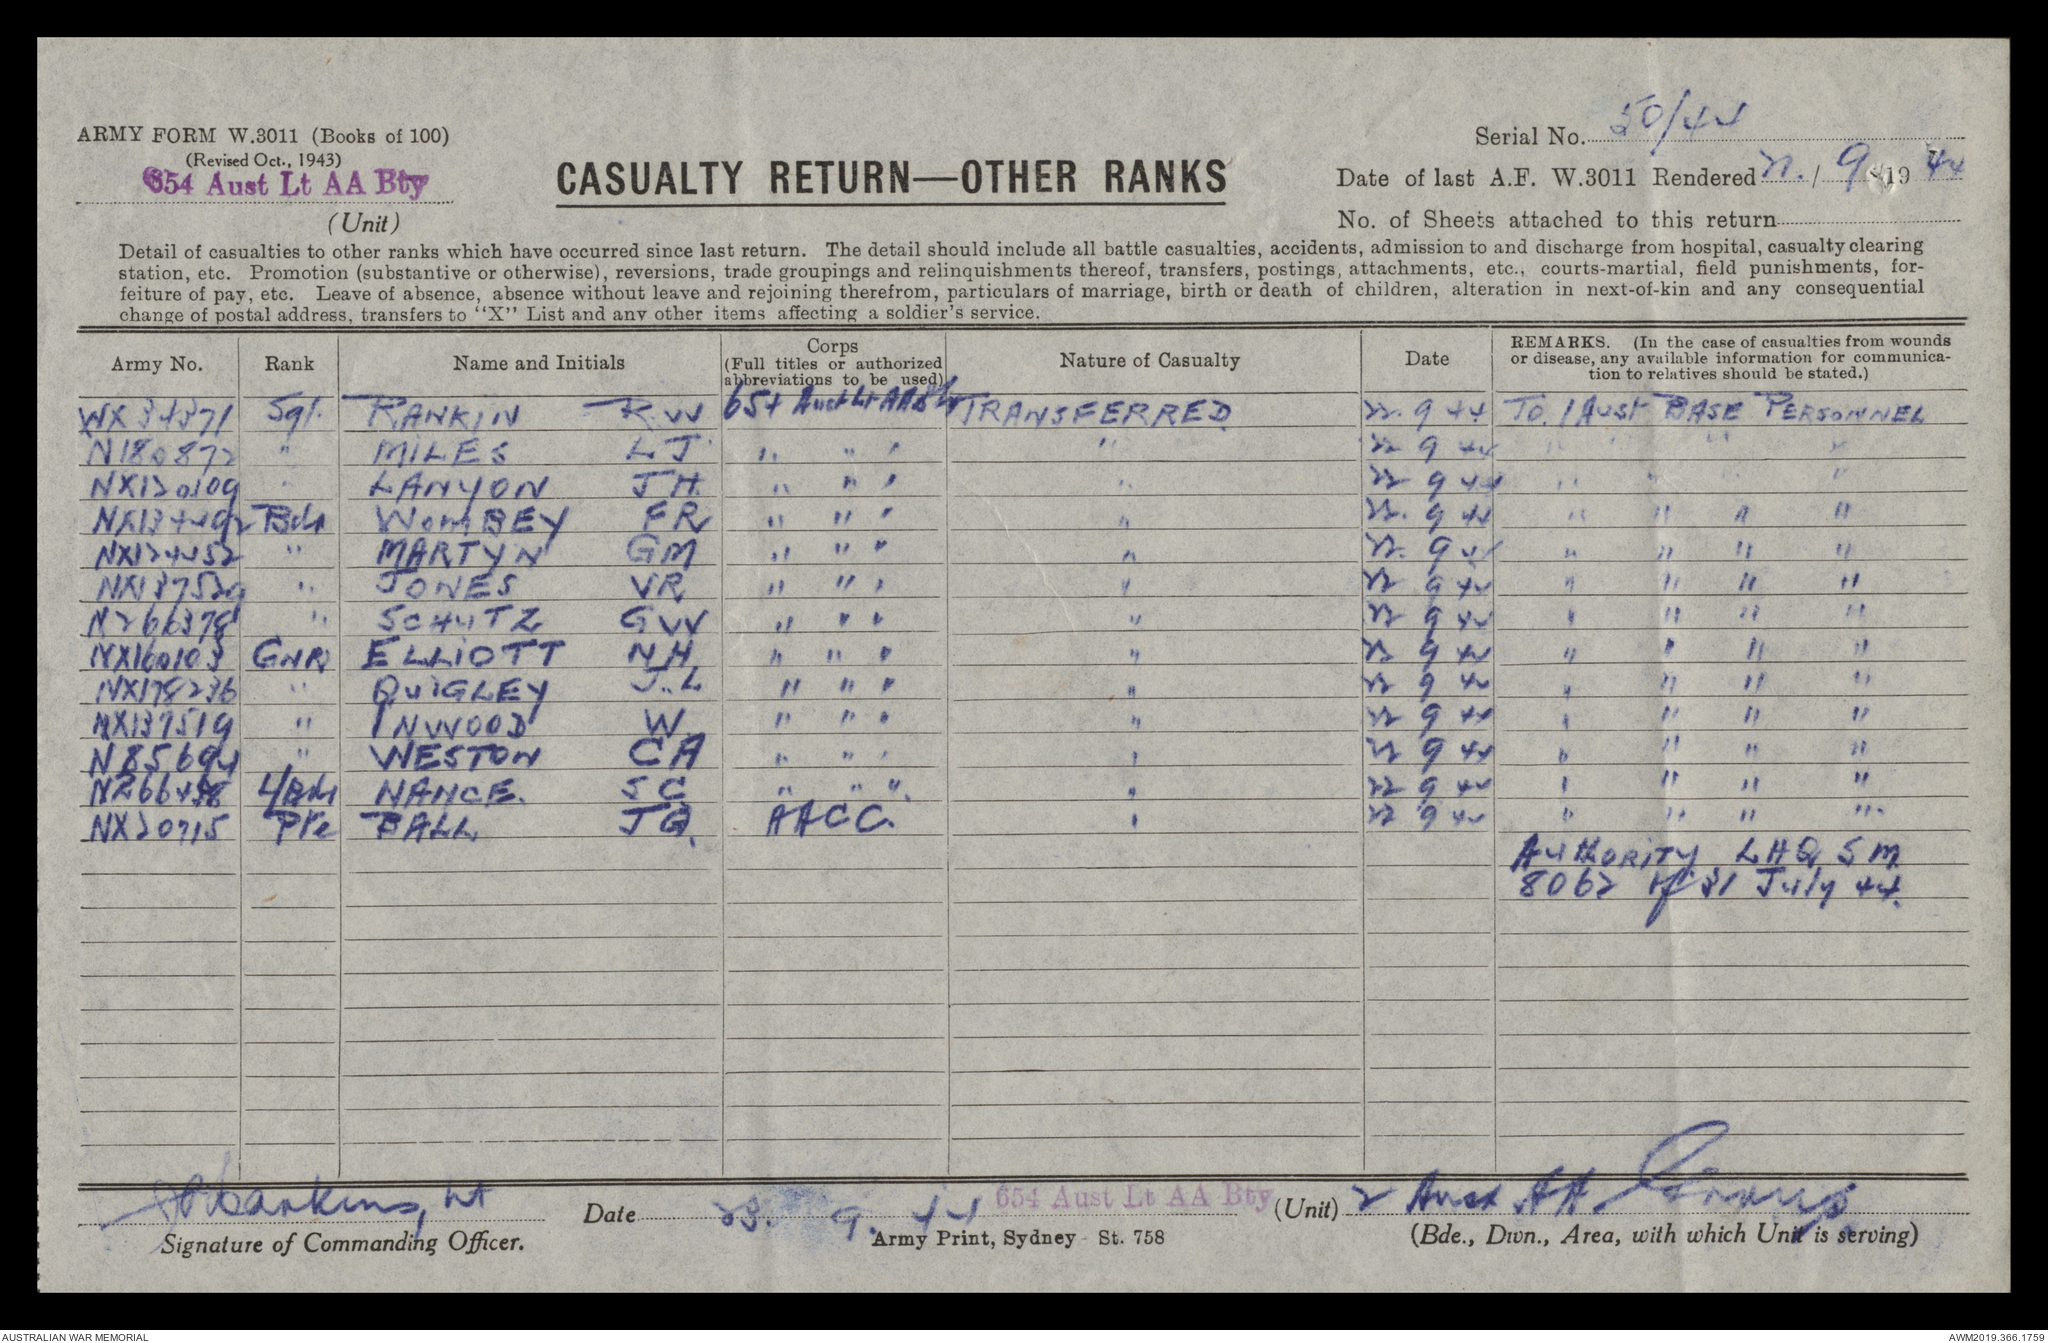 ARMY FORM W.3011 (Books of 100)
(Revised Oct., 1943)
654 Aust Lt AA Bty
(Unit)
CASUALTY RETURN—OTHER RANKS
Serial No. 50/44
Date of last A.F. W.3011 Rendered 22. / 9 1944
No. of Sheets attached to this return
Detail of casualties to other ranks which have occurred since last return. The detail should include all battle casualties, accidents, admission to and discharge from hospital, casualty clearing
station, etc. Promotion (substantive or otherwise), reversions, trade groupings and relinquishments thereof, transfers, postings, attachments, etc., courts-martial, field punishments, for-
feiture of pay, etc. Leave of absence, absence without leave and rejoining therefrom, particulars of marriage, birth or death of children, alteration in next-of-kin and any consequential
change of postal address, transfers to "X" List and any other items affecting a soldier's service.
Army No. Rank Name and Initials Corps (Full titles or authorized abbreviations to be used) Nature of Casualty Date REMARKS. (In the case of casualties from wounds or disease, any available information for communication to relatives should be stated.)
WX34371 Sgt. RANKIN R.W 654 Aust Lt AA Bty TRANSFERRED 22. 9 44 To 1 Aust BASE PERSONNEL
N180872 " MILES LJ " " " " 22 9 44 " " " "
NX120109 " LANYON JH. " " " " 22 9 44 " " "
NX134492 Bdr WOMBEY FR " " " " 22. 9 44 " " " "
NX124452 " MARTYN GM " " " " 22. 9 44 " " " "
NX137529 " JONES VR " " " " 22 9 44 " " " "
N266378 " SCHUTZ GW " " " " 22 9 44 " " " "
NX160103 GNR ELLIOTT NH " " " " 22 9 44 " " " "
NX178236 " QUIGLEY J.L " " " " 22 9 44 " " " "
NX137519 " INWOOD W " " " " 22 9 44 " " " "
N85694 " WESTON CA " " " " 22 9 44 " " " "
N266438 L/Bdr NANCE. SC " " " " 22 9 44 " " " "
NX20715 Pte BALL JG. AACC. " 22 9 44 " " " "
AUTHORITY LHQ SM
8062 of 31 July 44.
Lt
Signature of Commanding Officer.
Date 23. 9. 44 654 Aust Lt AA Bty (Unit) 2 Aust AA Group
Army Print, Sydney St. 758
(Bde., Divn., Area, with which Unit is serving)
AUSTRALIAN WAR MEMORIAL
AWM2019.366.1759